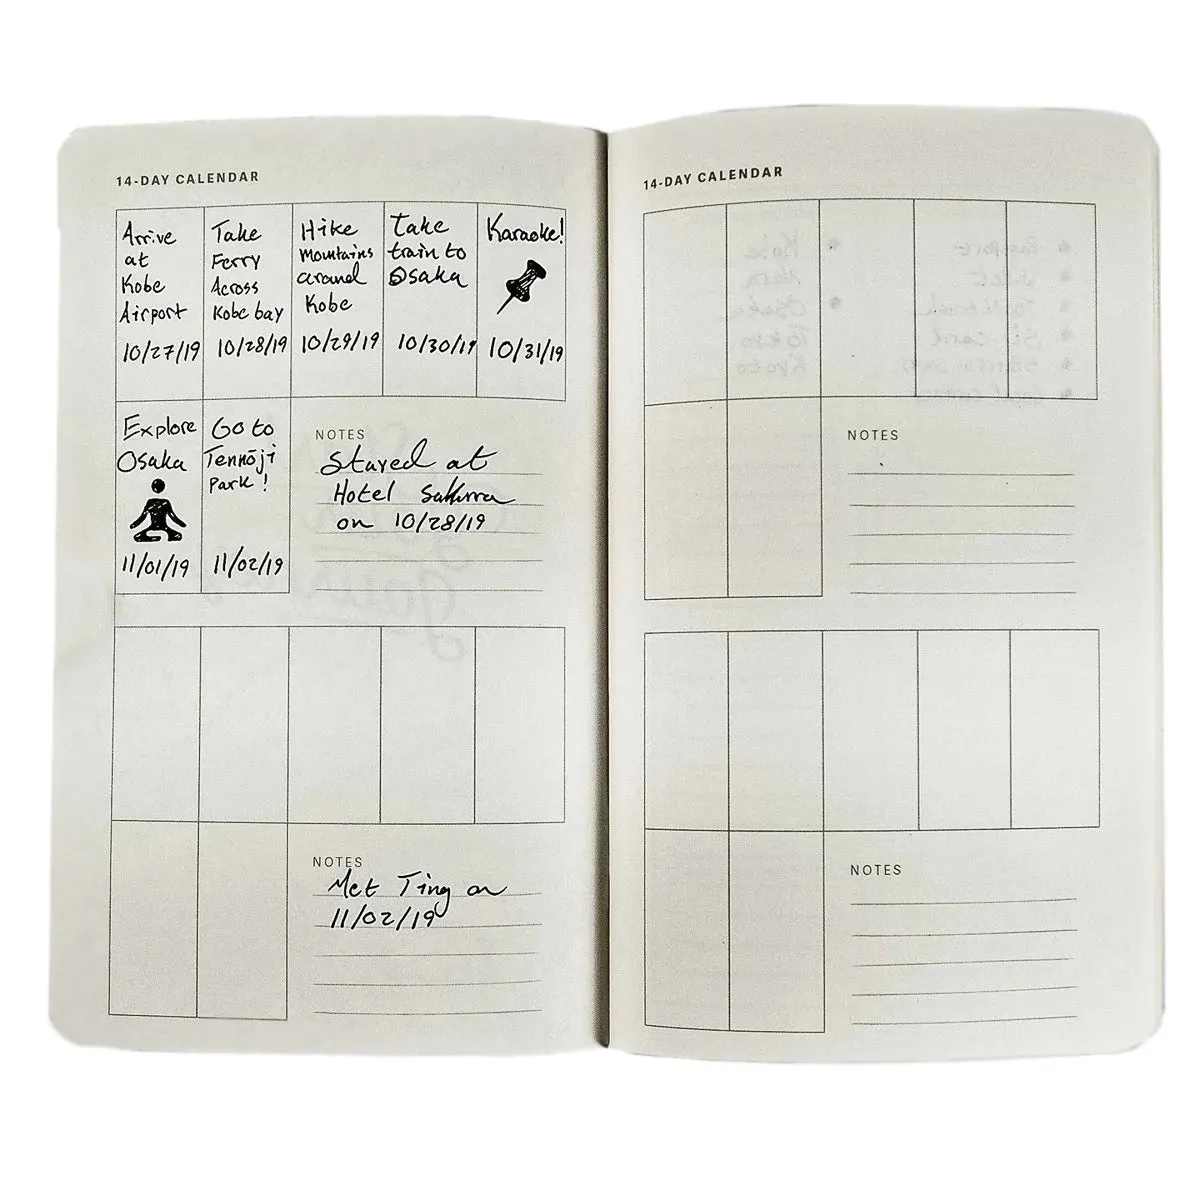 14-DAY CALENDAR
Arrive
at
Kobe
Airport
10/27/19
Take
Ferry
Across
Kobe bay
10/28/19
Hike
Mountains
around
Kobe
10/29/19
take
train to
Osaka
10/30/19
Karaoke!
10/31/19
Explore
Osaka
11/01/19
Go to
Tennōji
Park!
11/02/19
NOTES
Stayed at
Hotel Sakura
on 10/28/19
NOTES
Met Ting on
11/02/19
14-DAY CALENDAR
NOTES
NOTES